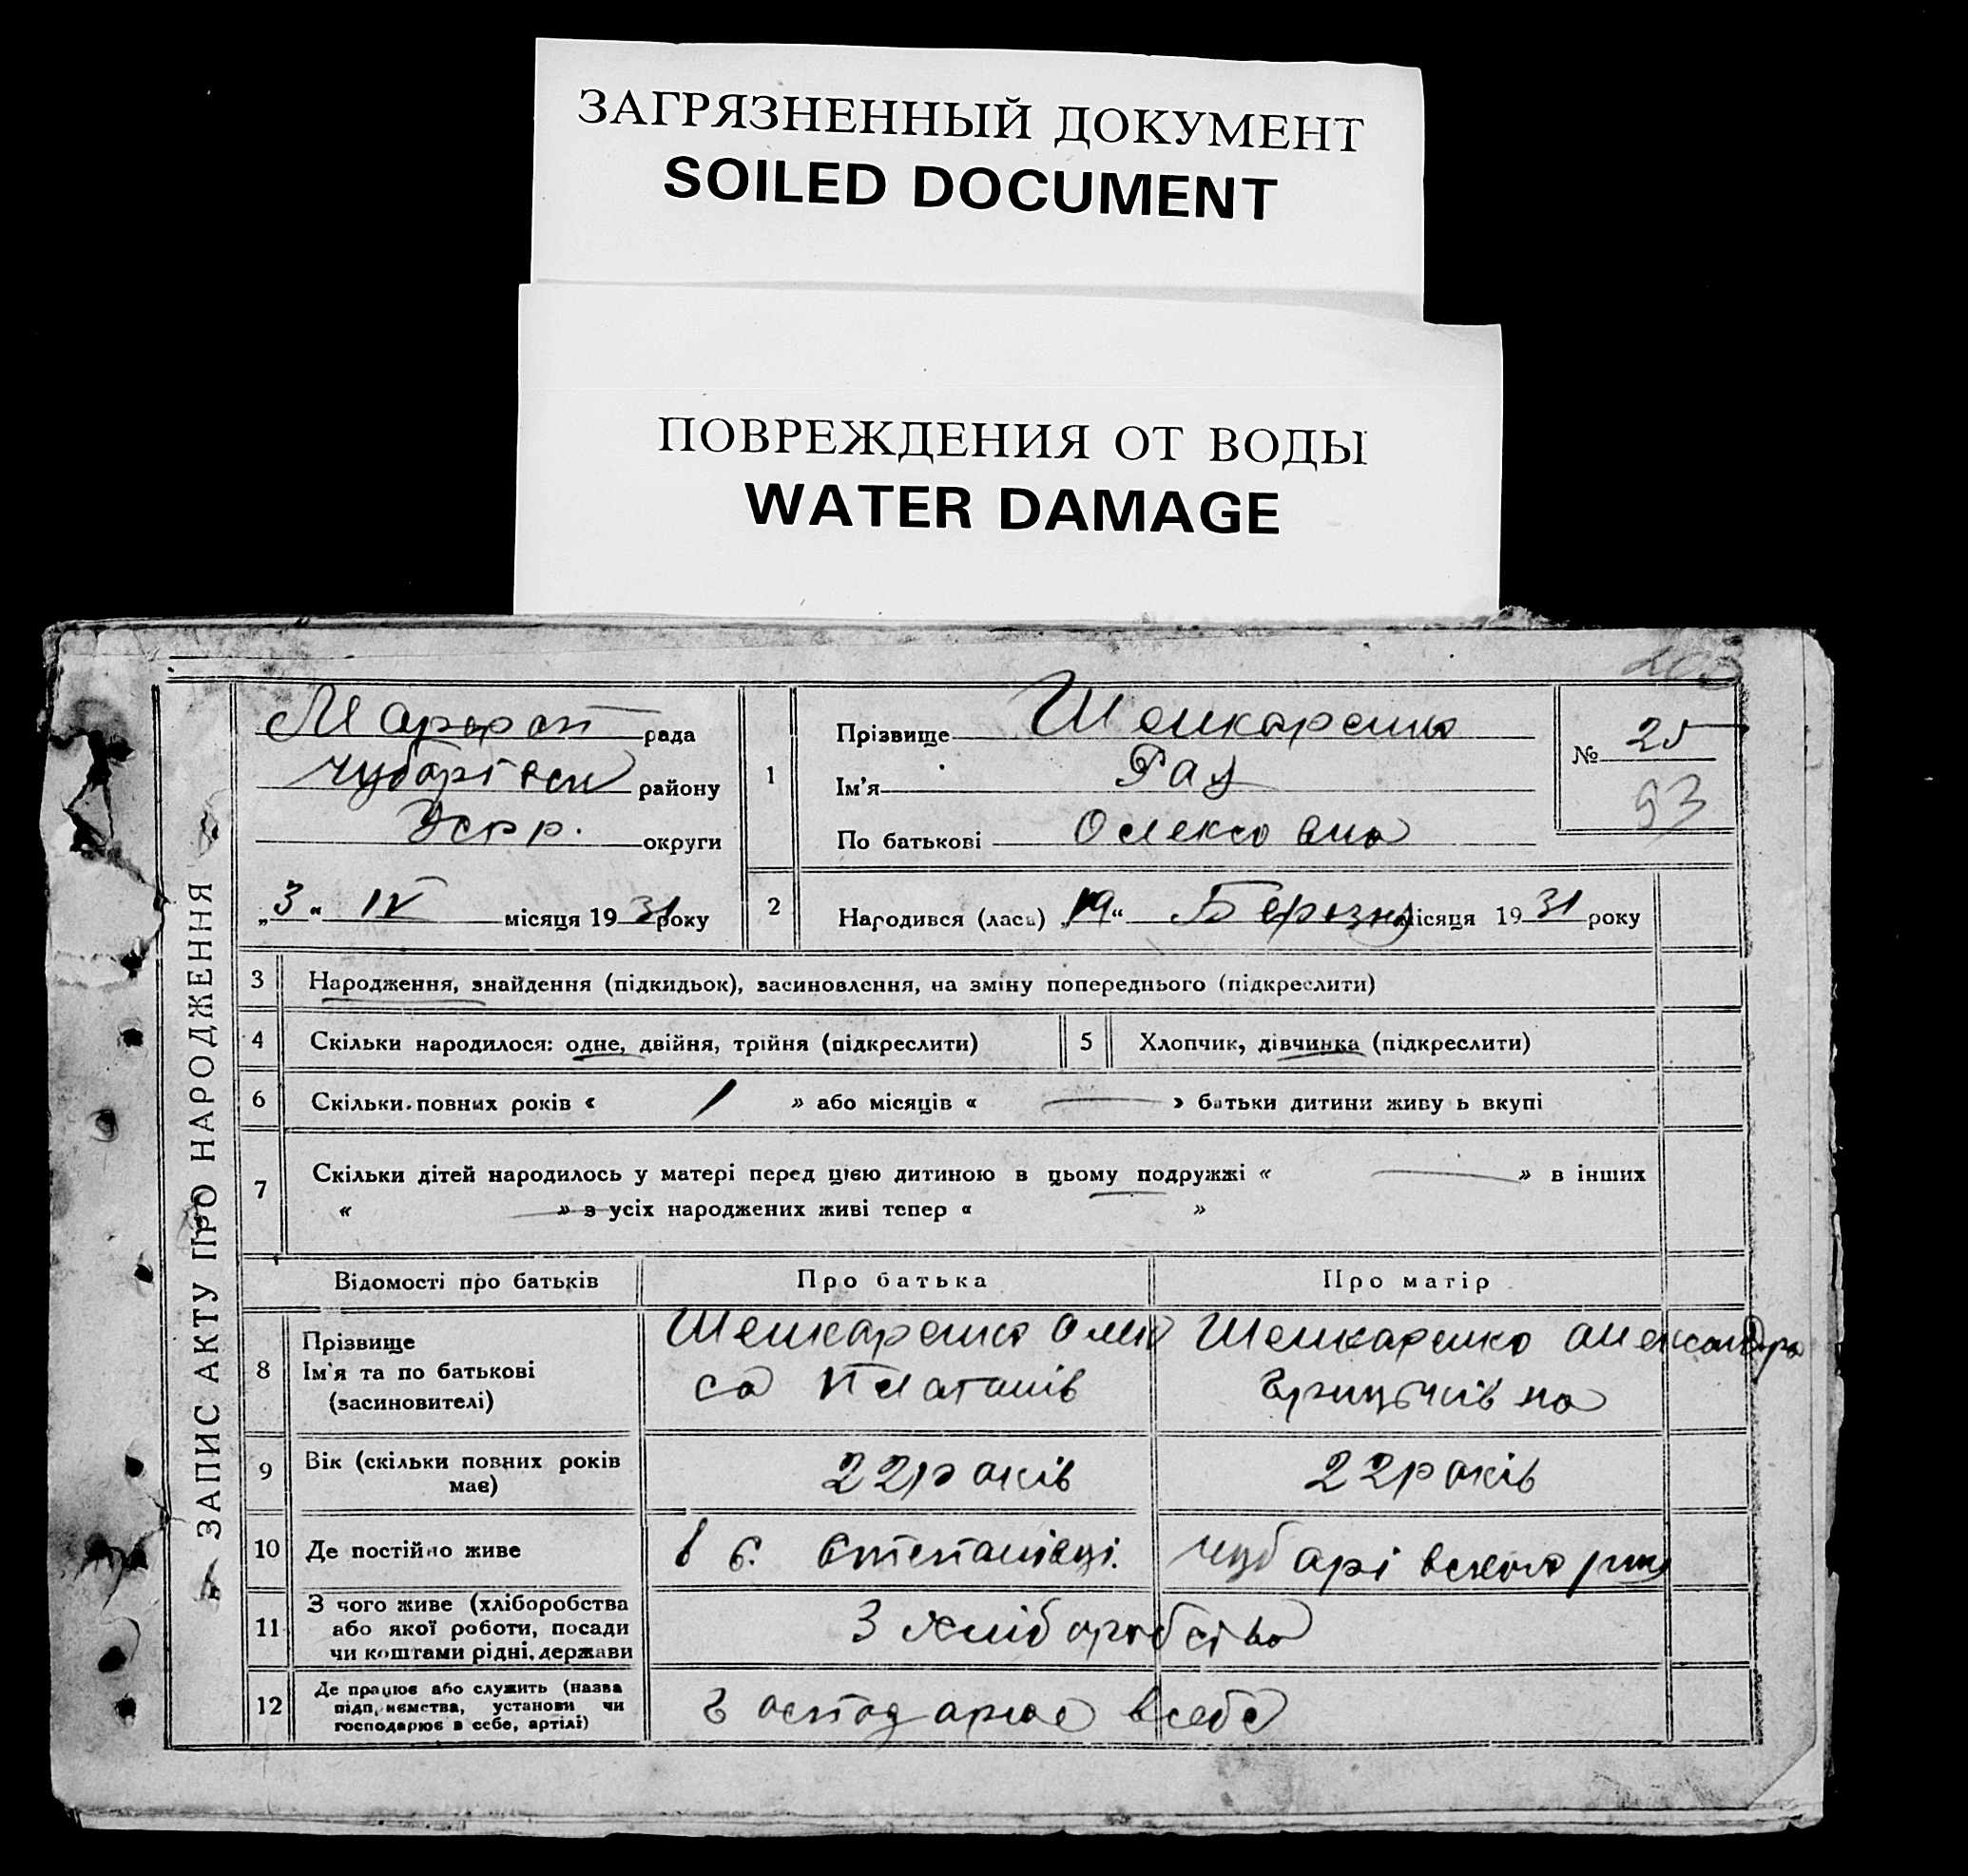 ЗАГРЯЗНЕННЫЙ ДОКУМЕНТ
SOILED DOCUMENT
ПОВРЕЖДЕНИЯ ОТ ВОДЫ
WATER DAMAGE
ЗАПИС АКТУ ПРО НАРОДЖЕННЯ
рада
району
Уср р. округи
„3“ IV місяця 1931 року
1
Прізвище
Ім'я Рая
По батькові
№ 25
93
2 Народився (лась) „19“ Березня місяця 1931 року
3 Народження, знайдення (підкидьок), васиновлення, на зміну попереднього (підкреслити)
4 Скільки народилося: одне, двійня, трійня (підкреслити) 5 Хлопчик, дівчинка (підкреслити)
6 Скільки повних років « 1 » або місяців « — » батьки дитини живу ь вкупі
7 Скільки дітей народилось у матері перед цією дитиною в цьому подружжі « — » в інших
« — » з усіх народжених живі тепер « »
Відомості про батьків Про батька Про матір
8 Прізвище
Ім'я та по батькові
(засиновителі)
9 Вік (скільки повних років має) 22 років 22 років
10 Де постійно живе в с. Степанівці.
11 З чого живе (хліборобства
або якої роботи, посади
чи коштами рідні, держави
З хліборобства
12 Де працює або служить (назва
підприємства, установи чи
господарює в себе, артілі)
Господарює в себе